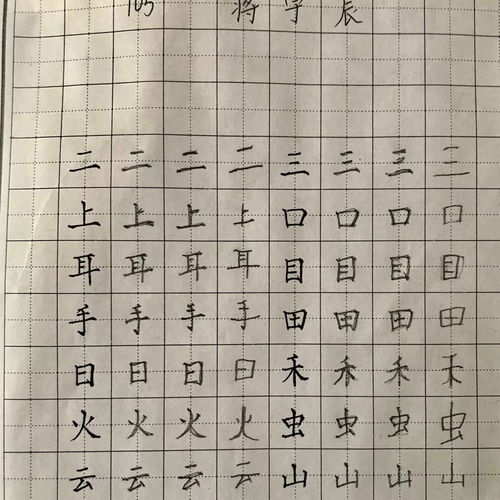 105 蒋宇辰
二 二 二 二 三 三 三 三
上 上 上 上 口 口 口 口
耳 耳 耳 耳 目 目 目 目
手 手 手 手 田 田 田 田
日 日 日 日 禾 禾 禾 禾
火 火 火 火 虫 虫 虫 虫
云 云 云 云 山 山 山 山